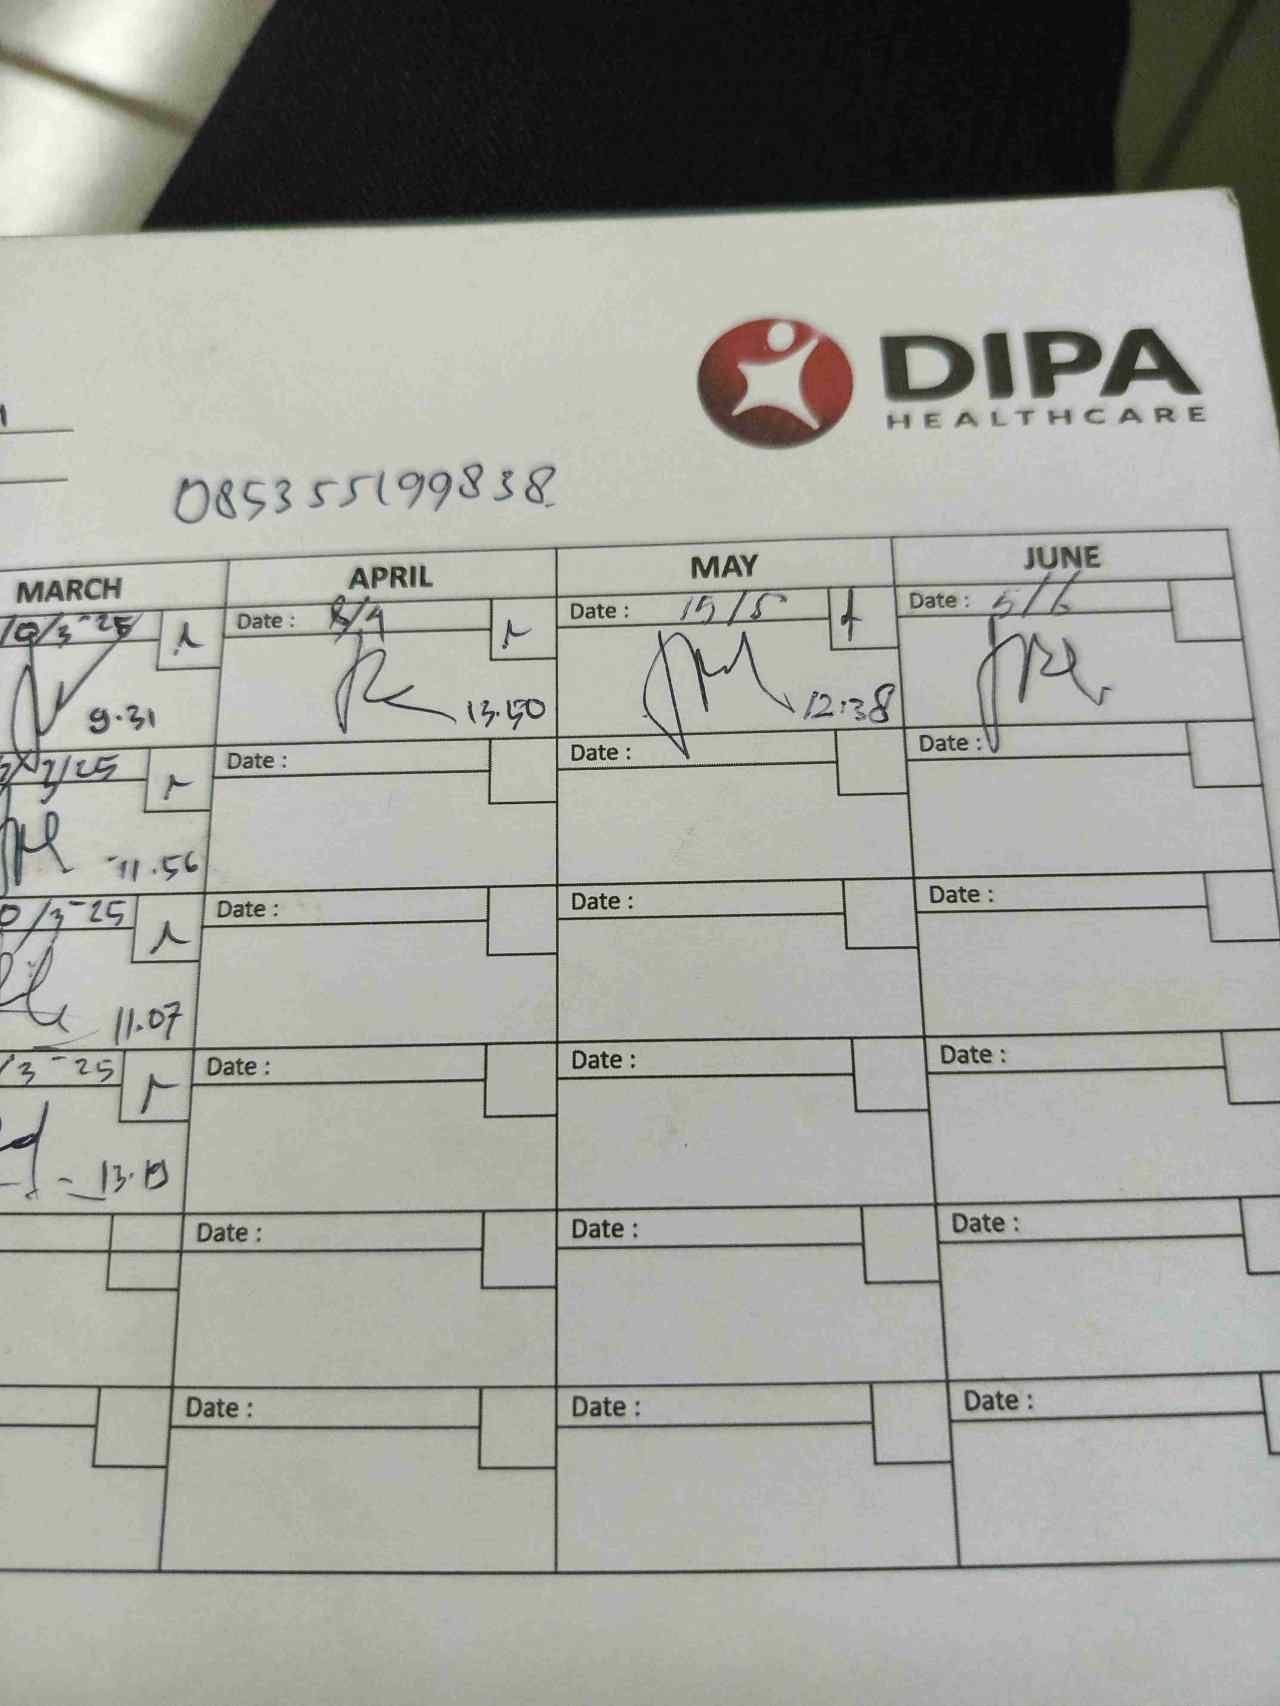 DIPA
HEALTHCARE
085355199838
MARCH APRIL MAY JUNE
10/3-25 Date : 8/4 Date : 15/5 Date : 5/6
9.31 13.50 12:38
3/25 Date : Date : Date :
11.56
0/3-25 Date : Date : Date :
11.07
/3-25 Date : Date : Date :
13.19
Date : Date : Date :
Date : Date : Date :